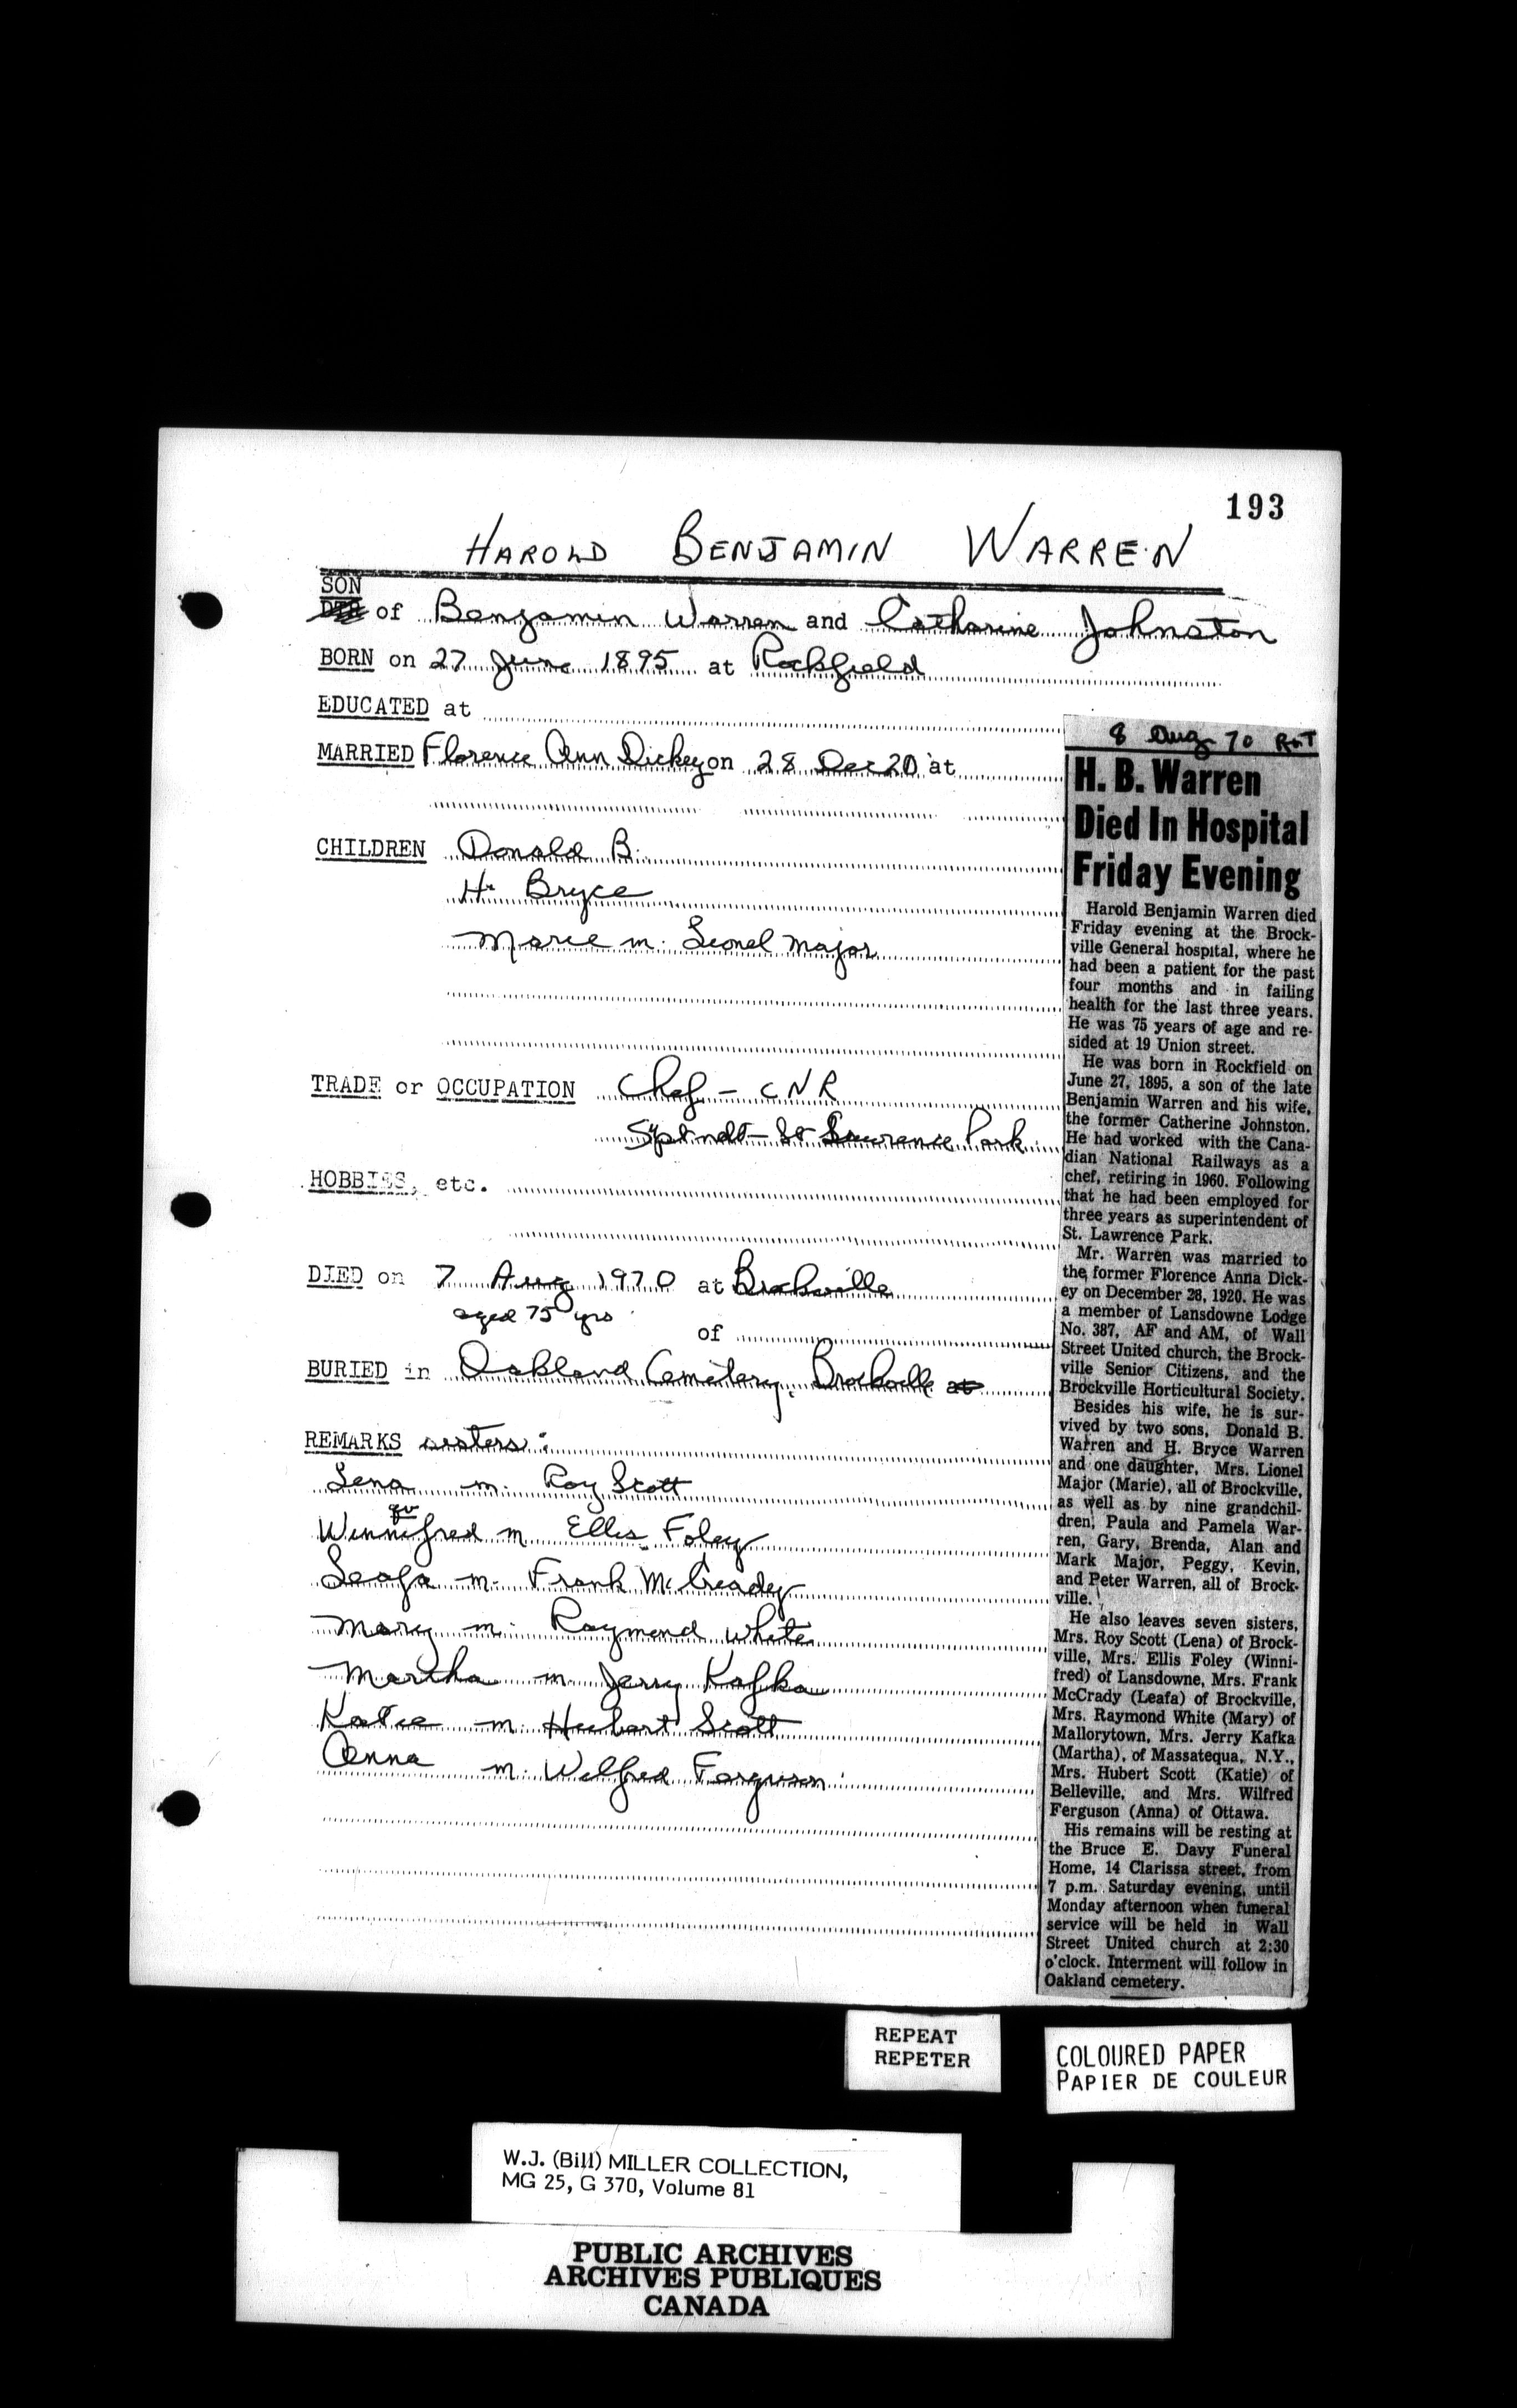 193
HAROLD BENJAMIN WARREN
SON
DTR of Benjamin Warren and Catharine Johnston
BORN on 27 June 1895 at Rockfield
EDUCATED at
MARRIED Florence Ann Dickey on 28 Dec 20 at
CHILDREN Donald B.
H. Bryce
Marie m. Lionel Major
TRADE or OCCUPATION Chef - CNR
Sptndt - St Lawrence Park
HOBBIES, etc.
DIED on 7 Aug 1970 at Brockville
aged 75 yrs
of
BURIED in Oakland Cemetery, Brockville at
REMARKS sisters:
Lena m. Roy Scott
qv
Winnifred m. Ellis Foley
Leafa m. Frank McCready
Mary m. Raymond White
Martha m. Jerry Kafka
Katie m. Hubert Scott
Anna m. Wilfred Ferguson
8 Aug 70 R&T
H. B. Warren
Died In Hospital
Friday Evening
Harold Benjamin Warren died
Friday evening at the Brock-
ville General hospital, where he
had been a patient for the past
four months and in failing
health for the last three years.
He was 75 years of age and re-
sided at 19 Union street.
He was born in Rockfield on
June 27, 1895, a son of the late
Benjamin Warren and his wife,
the former Catherine Johnston.
He had worked with the Cana-
dian National Railways as a
chef, retiring in 1960. Following
that he had been employed for
three years as superintendent of
St. Lawrence Park.
Mr. Warren was married to
the former Florence Anna Dick-
ey on December 28, 1920. He was
a member of Lansdowne Lodge
No. 387, AF and AM, of Wall
Street United church, the Brock-
ville Senior Citizens, and the
Brockville Horticultural Society.
Besides his wife, he is sur-
vived by two sons, Donald B.
Warren and H. Bryce Warren
and one daughter, Mrs. Lionel
Major (Marie), all of Brockville,
as well as by nine grandchil-
dren, Paula and Pamela War-
ren, Gary, Brenda, Alan and
Mark Major, Peggy, Kevin,
and Peter Warren, all of Brock-
ville.
He also leaves seven sisters,
Mrs. Roy Scott (Lena) of Brock-
ville, Mrs. Ellis Foley (Winni-
fred) of Lansdowne, Mrs. Frank
McCrady (Leafa) of Brockville,
Mrs. Raymond White (Mary) of
Mallorytown, Mrs. Jerry Kafka
(Martha), of Massatequa, N.Y.,
Mrs. Hubert Scott (Katie) of
Belleville, and Mrs. Wilfred
Ferguson (Anna) of Ottawa.
His remains will be resting at
the Bruce E. Davy Funeral
Home, 14 Clarissa street, from
7 p.m. Saturday evening, until
Monday afternoon when funeral
service will be held in Wall
Street United church at 2:30
o'clock. Interment will follow in
Oakland cemetery.
REPEAT
REPETER
COLOURED PAPER
PAPIER DE COULEUR
W.J. (Bill) MILLER COLLECTION,
MG 25, G 370, Volume 81
PUBLIC ARCHIVES
ARCHIVES PUBLIQUES
CANADA